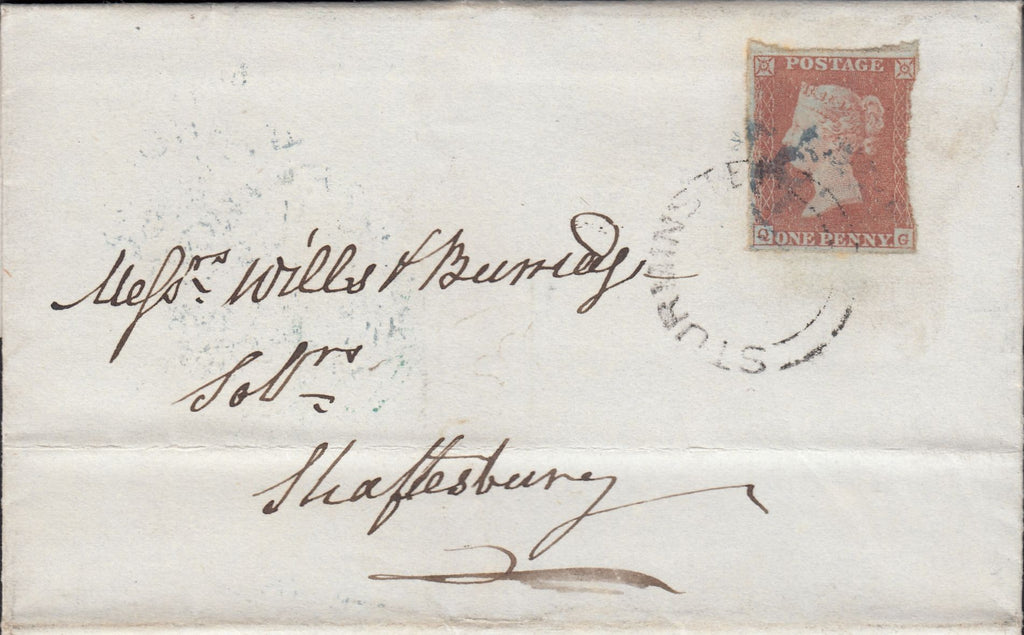 POSTAGE
ONE PENNY
G
STURMINSTE
Messrs. Wills & Burridge
Solrs.
Shaftesbury